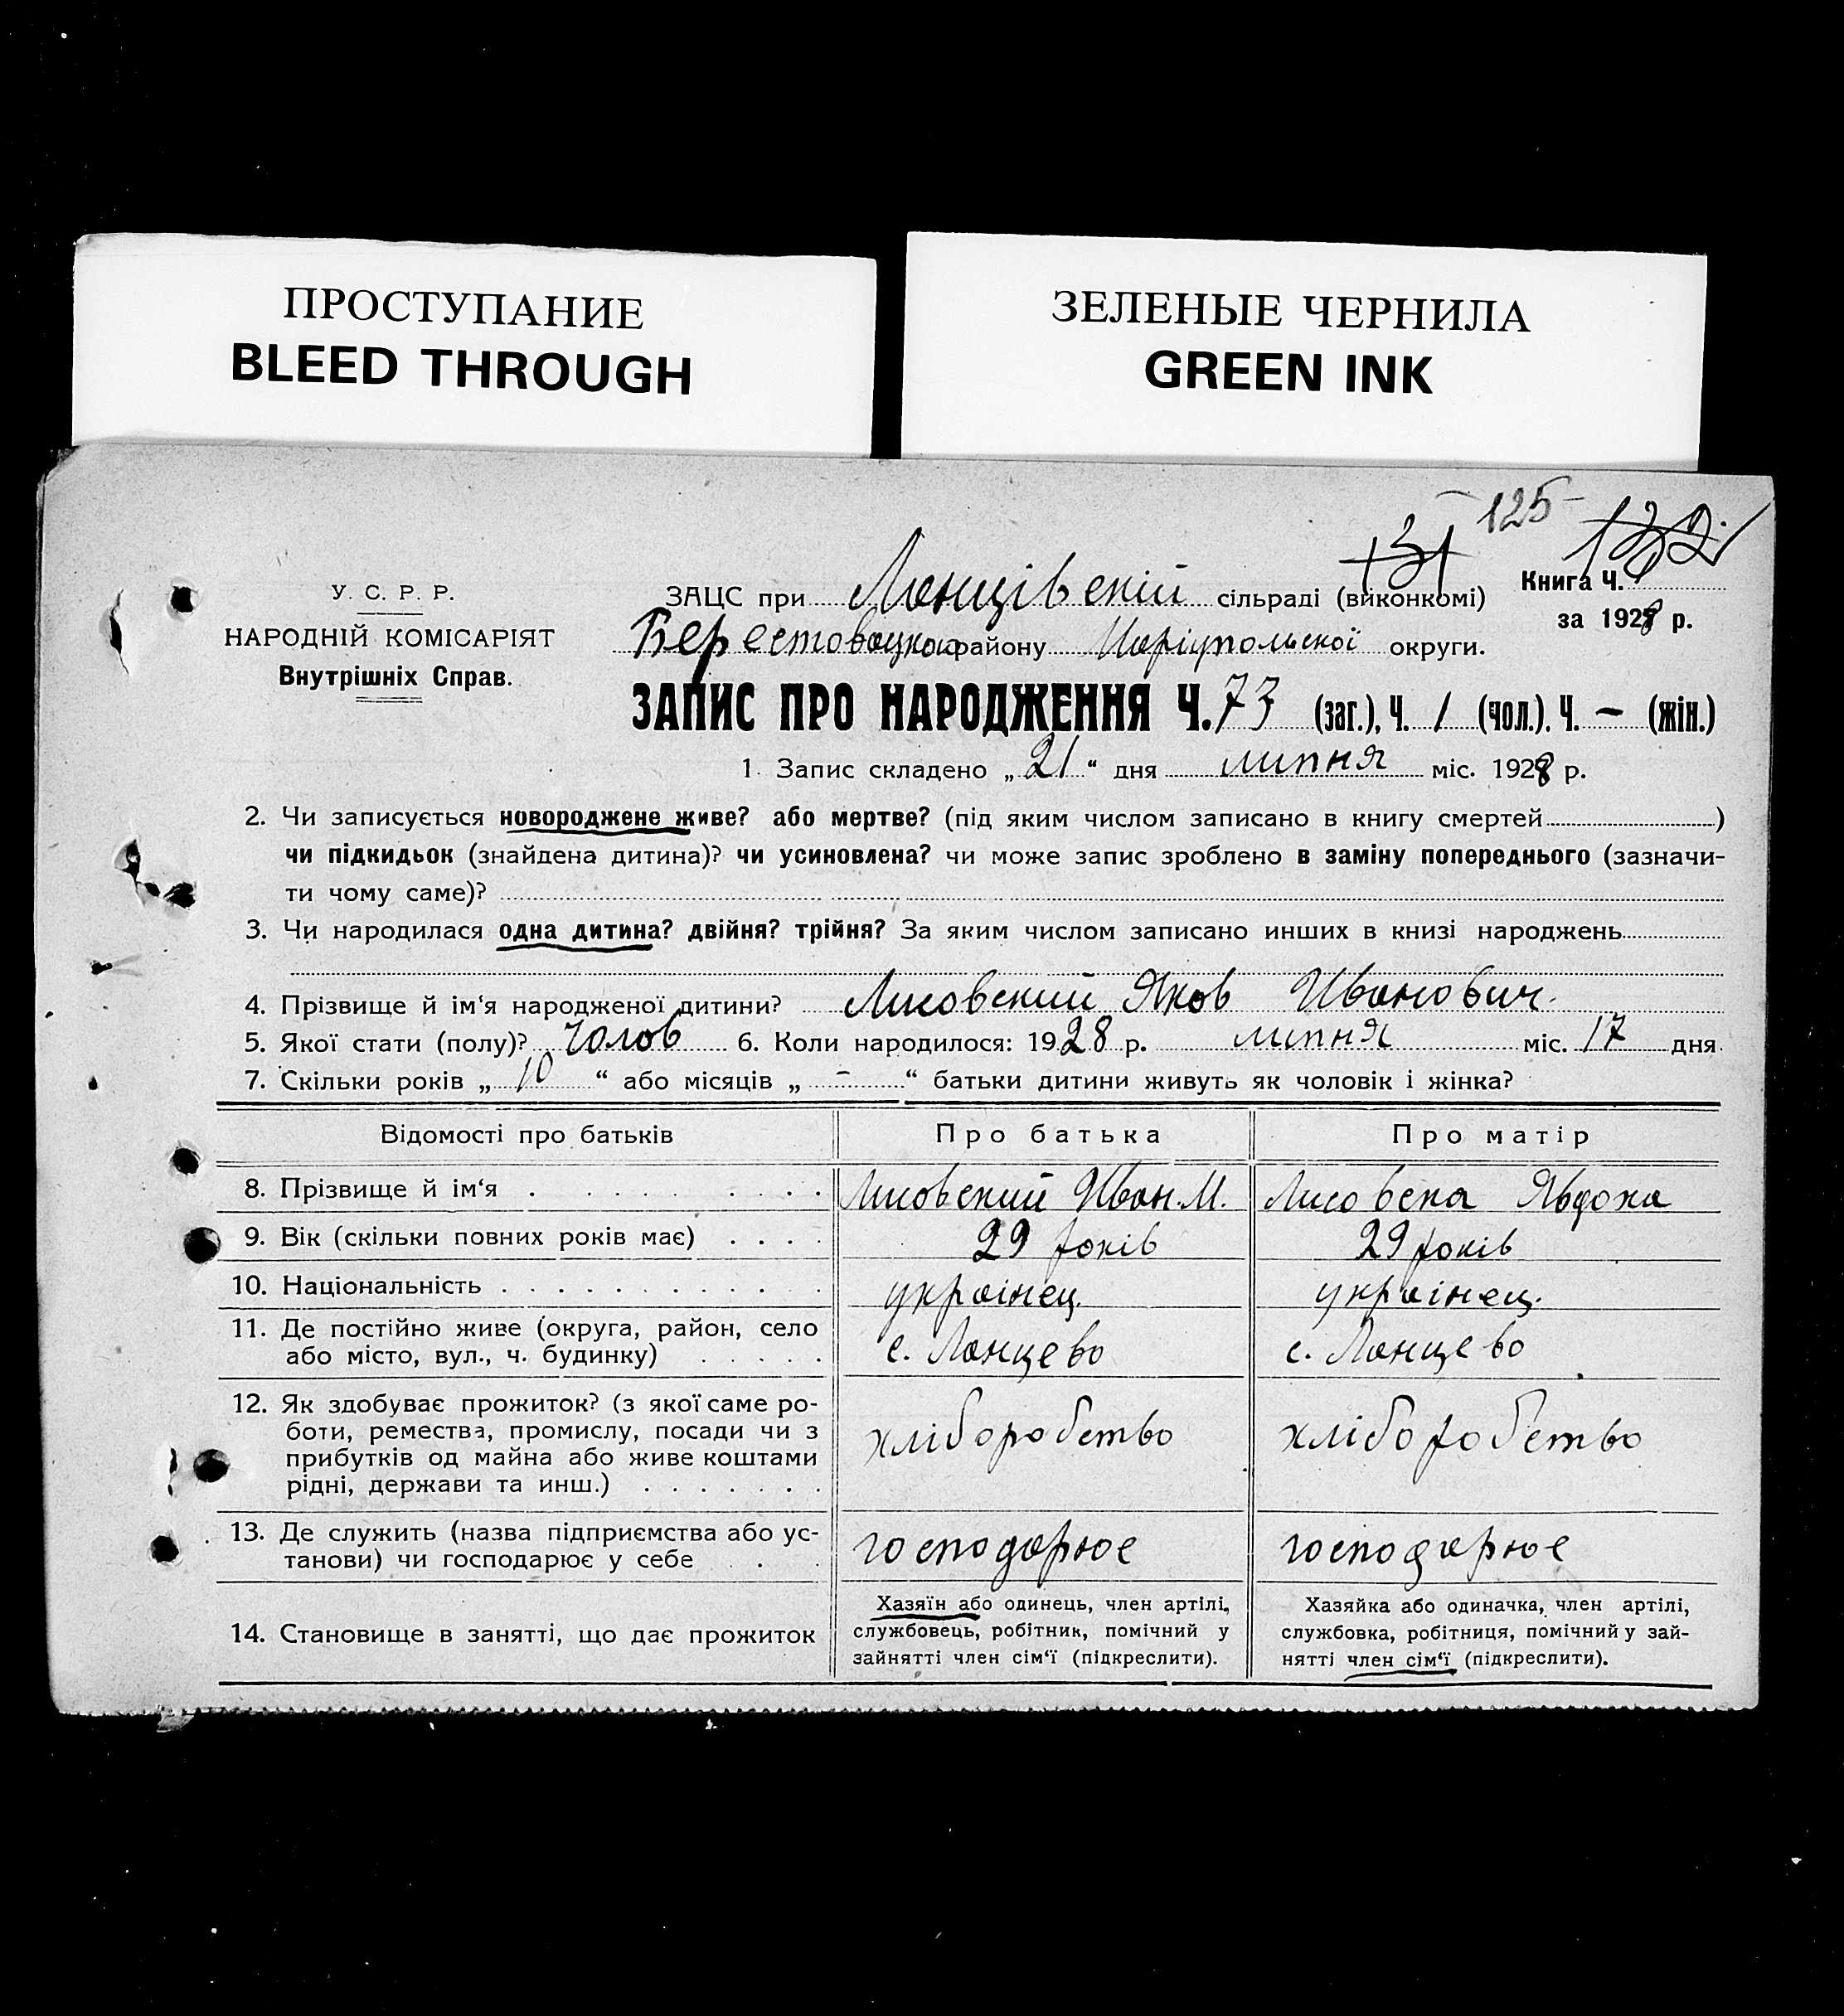 ПРОСТУПАНИЕ
BLEED THROUGH
ЗЕЛЕНЫЕ ЧЕРНИЛА
GREEN INK
125
131
132
У. С. Р. Р.
НАРОДНІЙ КОМІСАРІЯТ
Внутрішніх Справ.
Книга Ч.
за 1928 р.
ЗАЦС при Ланцівскій сільраді (виконкомі)
Берестовацько району Маріупольскої округи.
ЗАПИС ПРО НАРОДЖЕННЯ Ч. 73 (заг.), Ч. 1 (чол.). Ч. – (жін.)
1. Запис складено „21“ дня липня міс. 1928 р.
2. Чи записується новороджене живе? або мертве? (під яким числом записано в книгу смертей)
чи підкидьок (знайдена дитина)? чи усиновлена? чи може запис зроблено в заміну попереднього (зазначи-
ти чому саме)?
3. Чи народилася одна дитина? двійня? трійня? За яким числом записано инших в книзі народжень
4. Прізвище й ім‘я народженої дитини? Лисовский Яков Иванович.
5. Якої стати (полу)? чолов 6. Коли народилося: 1928 р. липня міс. 17 дня
7. Скільки років „10“ або місяців „–“ батьки дитини живуть як чоловік і жінка?
Відомості про батьків Про батька Про матір
8. Прізвище й ім‘я Лисовский Иван.М. Лисовска Явдоха
9. Вік (скільки повних років має) 29 років 29 років
10. Національність українец. українец.
11. Де постійно живе (округа, район, село
або місто, вул., ч. будинку) с. Ланцево с. Ланцево
12. Як здобуває прожиток? (з якої саме ро-
боти, ремества, промислу, посади чи з
прибутків од майна або живе коштами
рідні, держави та инш.)
хліборобство хліборобство
13. Де служить (назва підприємства або ус-
танови) чи господарює у себе
господарює господарює
14. Становище в занятті, що дає прожиток
Хазяїн або одинець, член артілі,
службовець, робітник, помічний у
зайнятті член сім‘ї (підкреслити).
Хазяйка або одиначка, член артілі,
службовка, робітниця, помічний у зай-
нятті член сім‘ї (підкреслити).